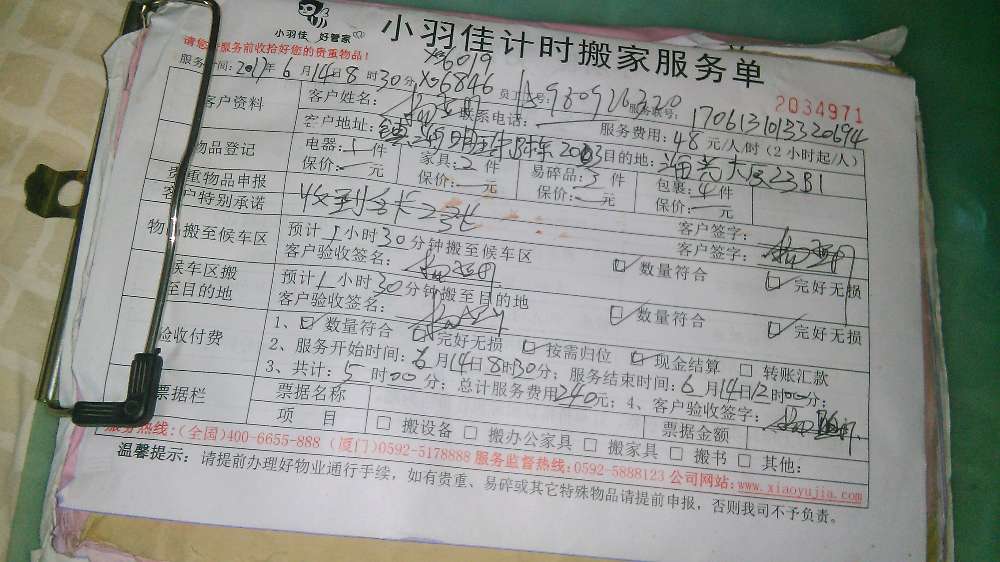 小羽佳 好管家
小羽佳计时搬家服务单
请您在服务前收拾好您的贵重物品!
X6019
服务时间:2017年6月14日8时30分 X6846 员工 号:980926320 服务账号:17061310133320694
2034971
客户资料 客户姓名: 联系电话: 服务费用:48元/人/时(2小时起/人)
客户地址: 目的地:
物品登记 电器:1件 家具:2件 易碎品:3件 包裹:4件
保价:—元 保价:—元 保价:—元 保价:—元
贵重物品申报 客户签字:
客户特别承诺 收到 客户签字:
物品搬至候车区 预计1小时30分钟搬至候车区
客户验收签名: ☑数量符合 ☑完好无损
候车区搬至目的地 预计1小时30分钟搬至目的地
客户验收签名: ☑数量符合 ☑完好无损
验收付费 1、☑数量符合 ☑完好无损 ☑按需归位 ☑现金结算 □转账汇款
2、服务开始时间:6月14日8时30分;服务结束时间:6月14日12时00分;
3、共计:5时00分;总计服务费用240元;4、客户验收签字:
票据栏 票据名称 票据金额
项 目 □搬设备 □搬办公家具 □搬家具 □搬书 □其他:
服务热线:(全国)400-6655-888 (厦门)0592-5178888 服务监督热线:0592-5888123 公司网站:www.xiaoyujia.com
温馨提示:请提前办理好物业通行手续,如有贵重、易碎或其它特殊物品请提前申报,否则我司不予负责。